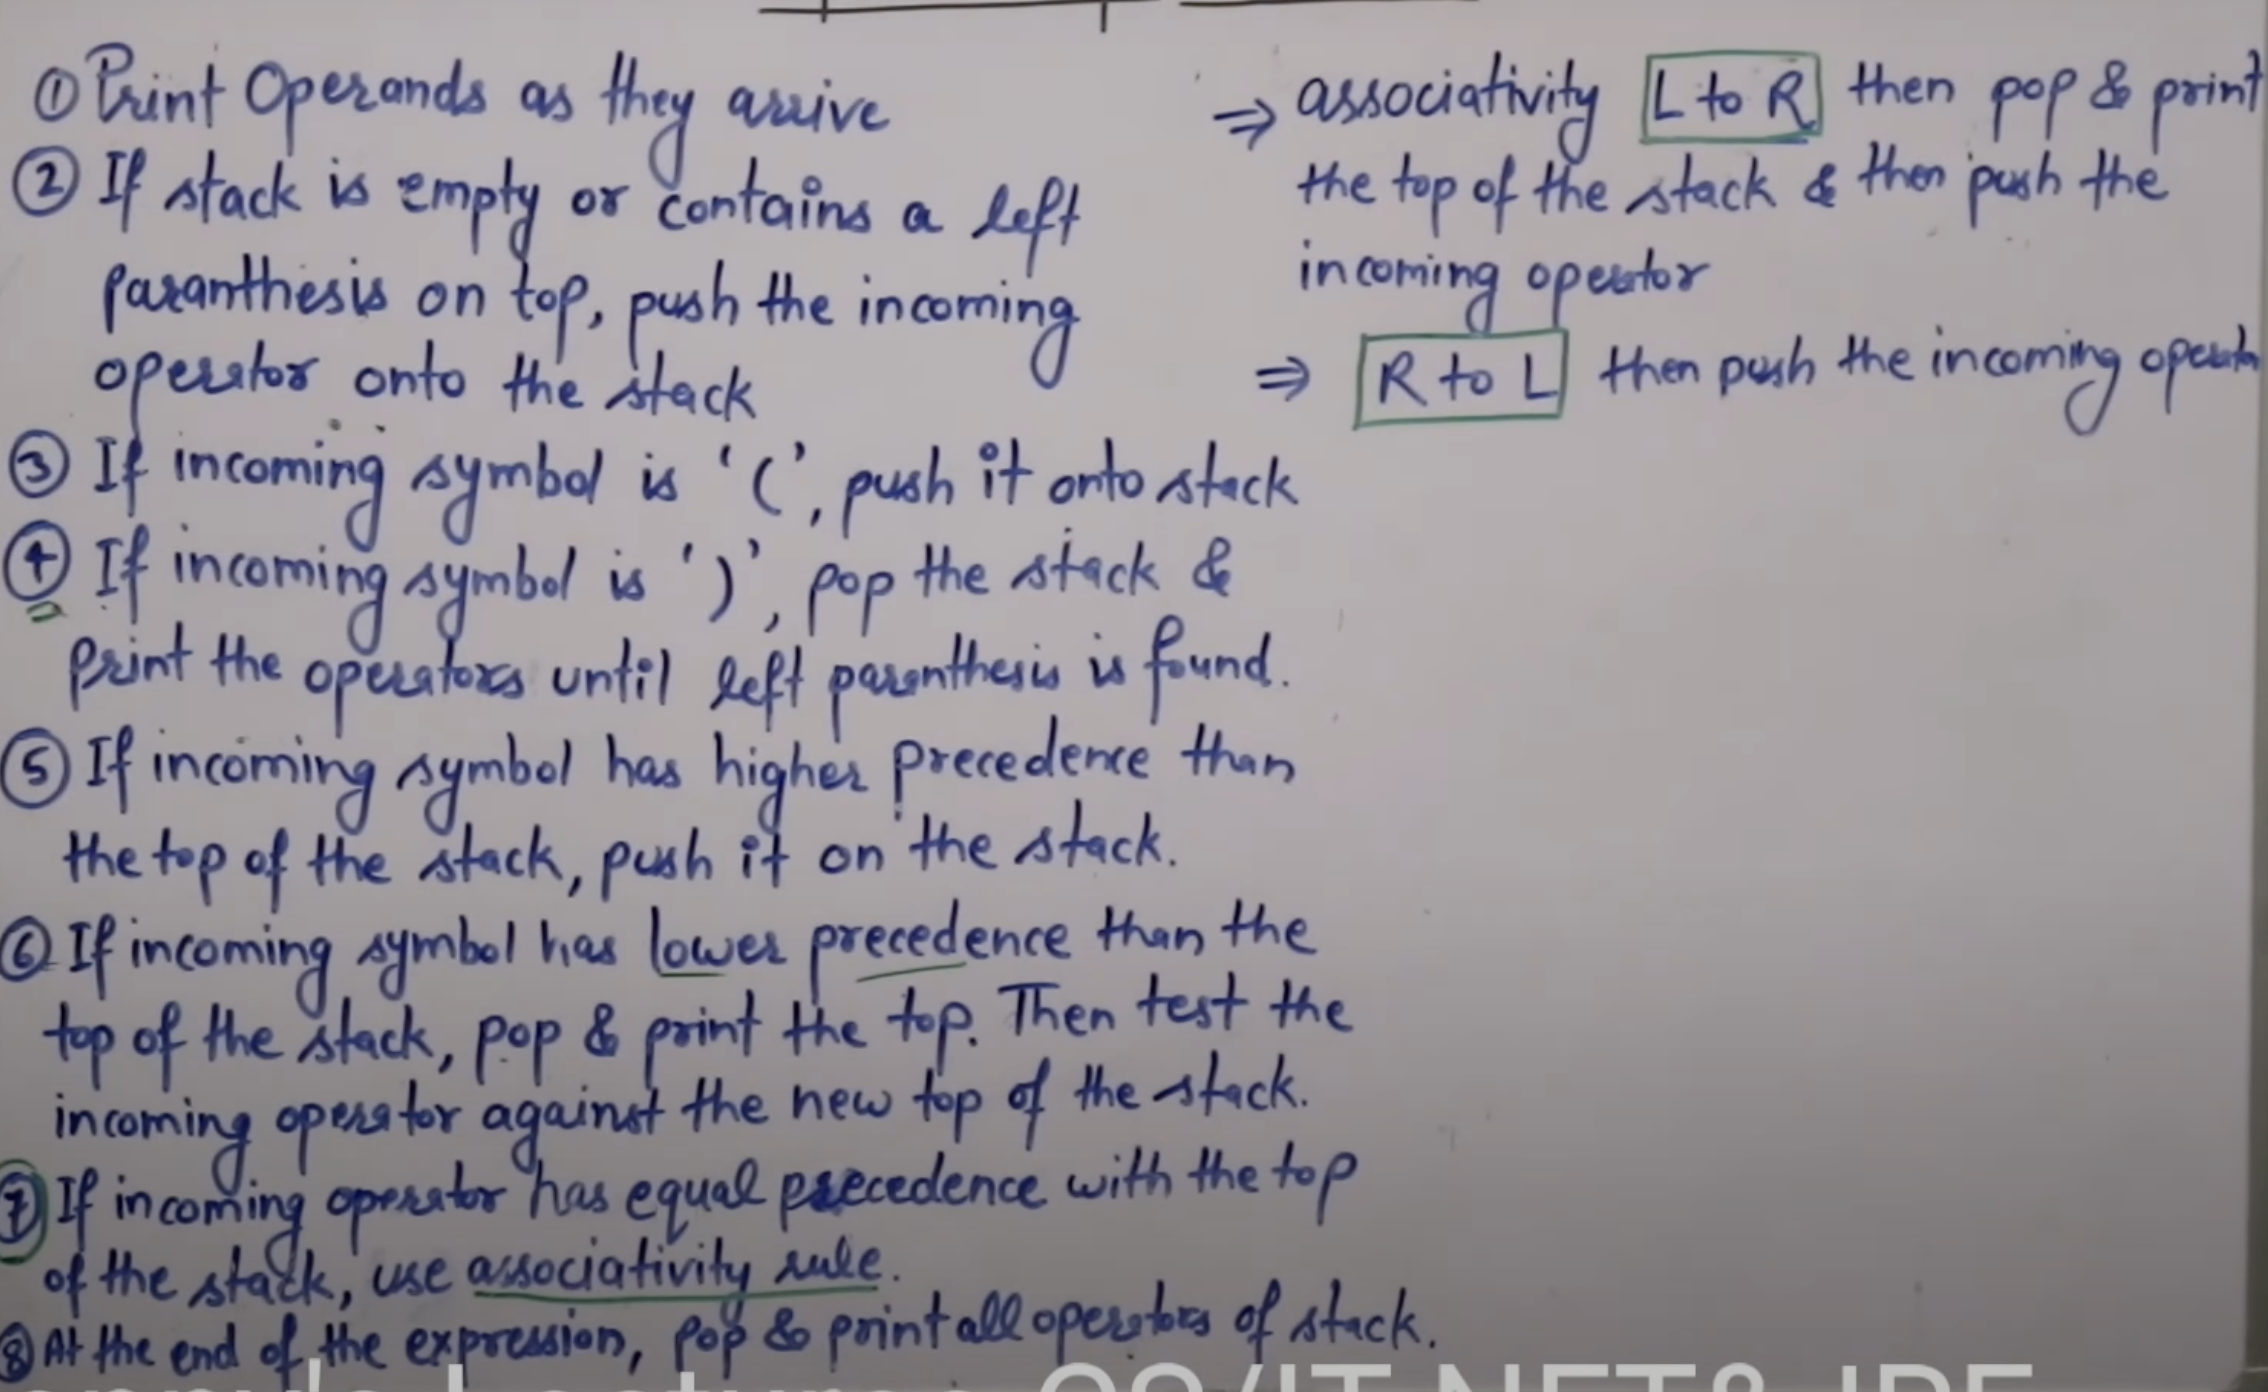 ① Print Operands as they arrive
② If stack is empty or contains a left
paranthesis on top, push the incoming
operator onto the stack
③ If incoming symbol is '(', push it onto stack
④ If incoming symbol is ')', pop the stack &
print the operators until left parenthesis is found.
⑤ If incoming symbol has higher precedence than
the top of the stack, push it on the stack.
⑥ If incoming symbol has lower precedence than the
top of the stack, pop & print the top. Then test the
incoming operator against the new top of the stack.
⑦ If incoming operator has equal precedence with the top
of the stack, use associativity rule.
⑧ At the end of the expression, pop & print all operators of stack.
⇒ associativity L to R then pop & print
the top of the stack & then push the
incoming operator
⇒ R to L then push the incoming operator
CS/IT NET& JRF